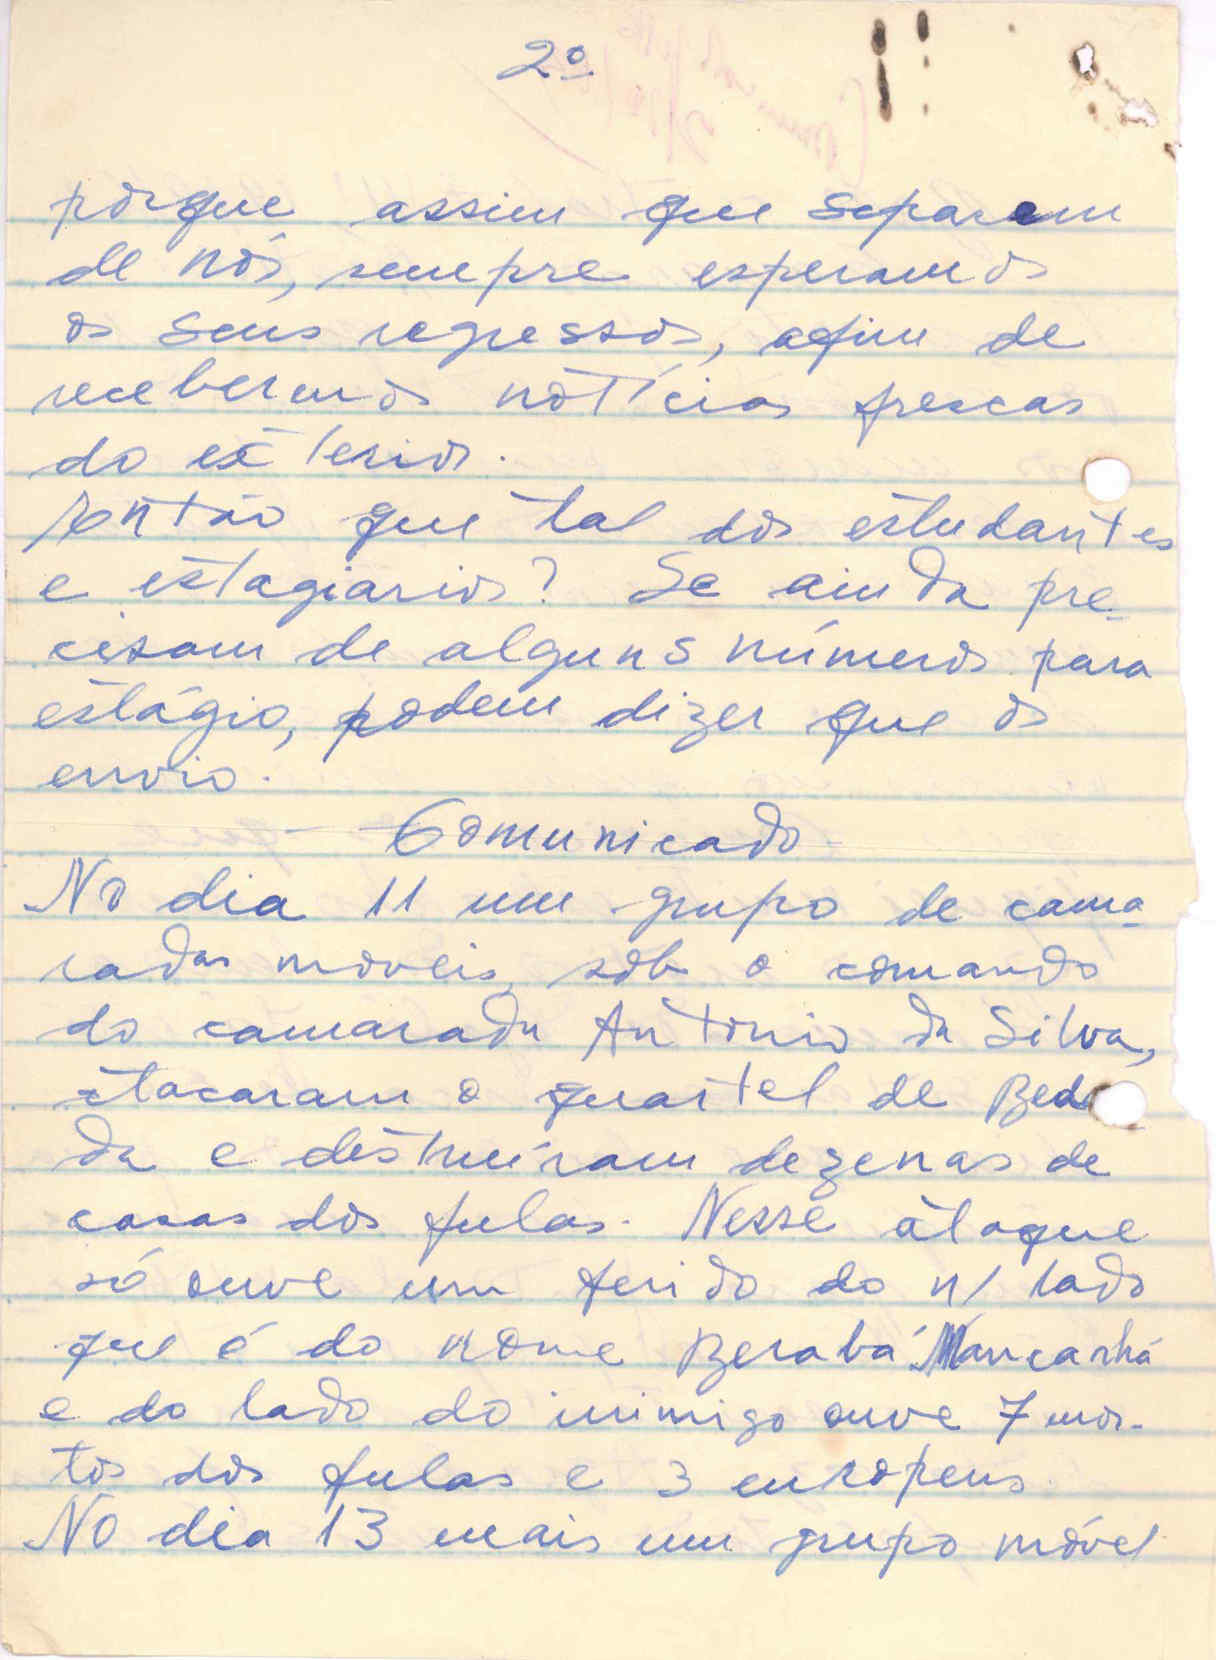 2º
porque assim que separam
de nós, sempre esperamos
os seus regressos, afim de
recebermos notícias frescas
do exterior.
Então que tal dos estudantes
e estagiarios? Se ainda pre-
cisam de alguns números para
estágio, podem dizer que os
envio.
- Comunicado -
No dia 11 um grupo de cama-
radas moveis, sob o comando
do camarada António da Silva,
atacaram o quartel de Beda
da e destruíram dezenas de
casas dos fulas. Nesse ataque
só ouve um ferido do n/ lado
que é do nome Berabá Mancanhá
e do lado do inimigo ouve 7 mor-
tos dos fulas e 3 europeus.
No dia 13 mais um grupo móvel